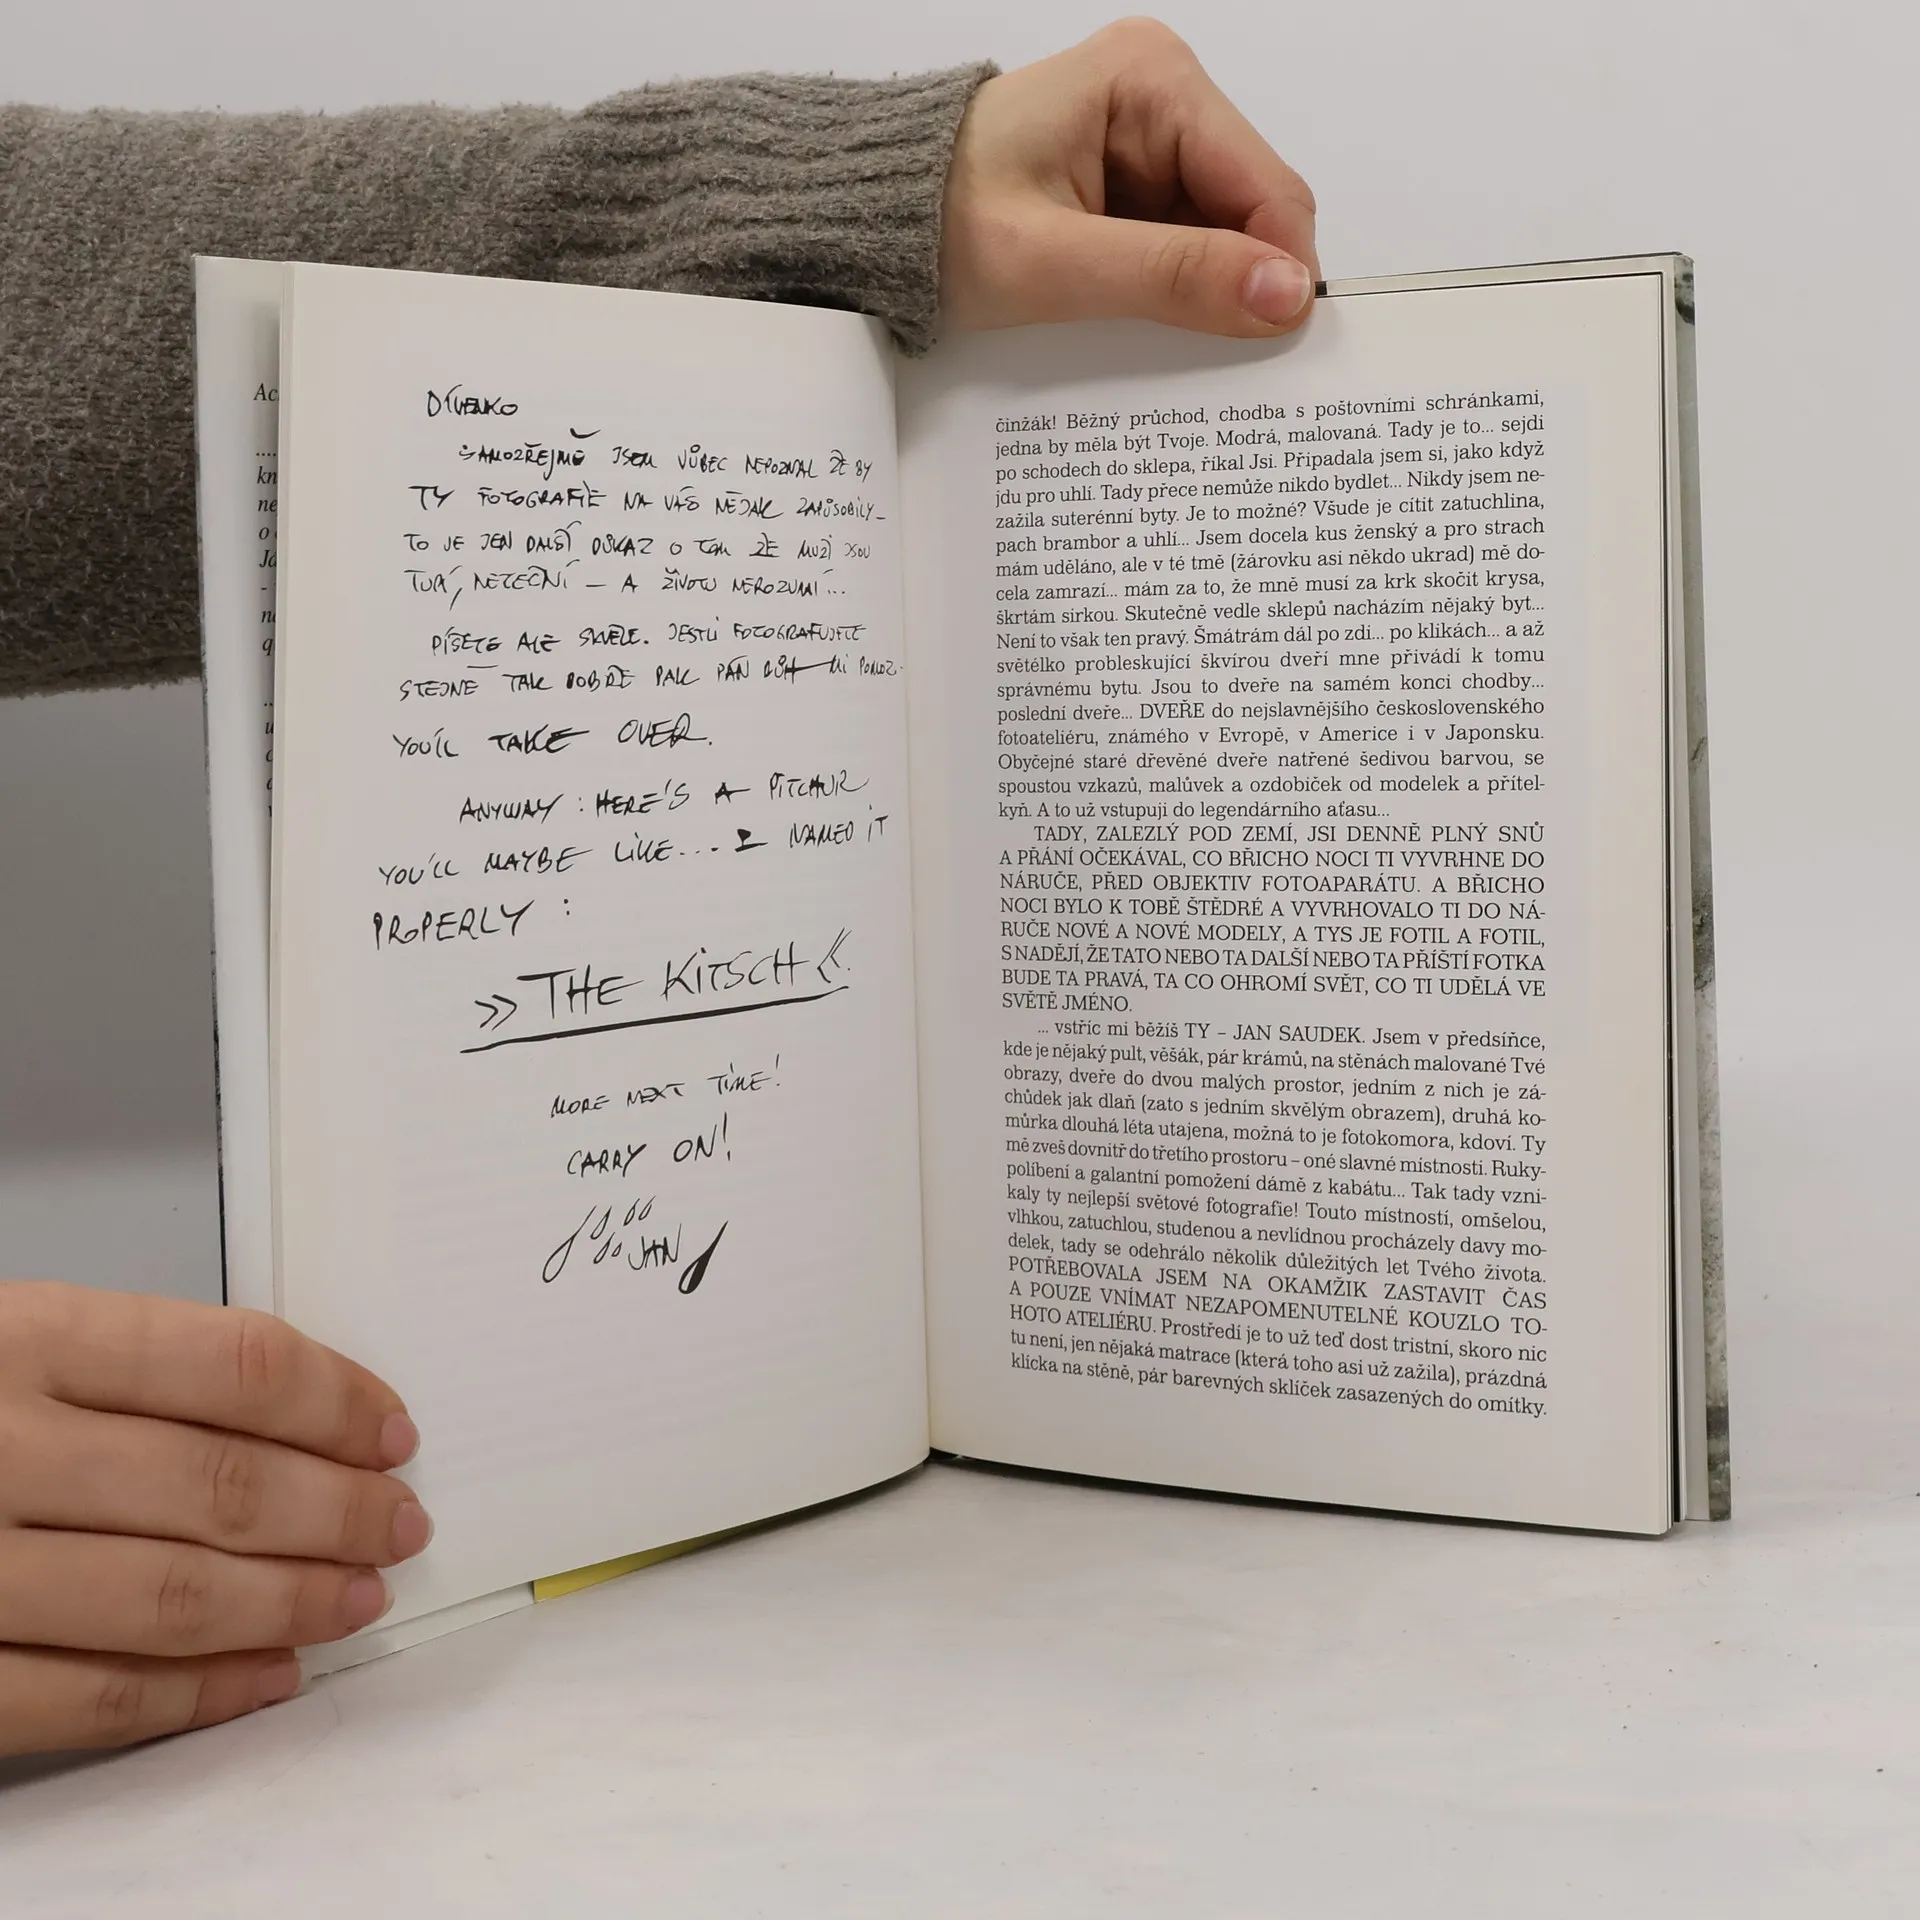 Ac
....
kn
ne
o
Já
-
na
q
..
DÍVENKO
SAMOZŘEJMĚ JSEM VŮBEC NEPOZNAL ŽE BY
TY FOTOGRAFIE NA VÁS NĚJAK ZAPŮSOBILY_
TO JE JEN DALŠÍ DŮKAZ O TOM ŽE MUŽI JSOU
TUPÍ, NETEČNÍ – A ŽIVOTU NEROZUMÍ...
PÍŠETE ALE SKVĚLE. JESTLI FOTOGRAFUJETE
STEJNĚ TAK DOBŘE PAK PÁN BŮH MI POMOZ.
YOU'LL TAKE OVER.
ANYWAY : HERE'S A PITCHUR
YOU'LL MAYBE LIKE... I NAMED IT
PROPERLY :
» THE KITSCH «.
MORE NEXT TIME!
CARRY ON!
JAN
činžák! Běžný průchod, chodba s poštovními schránkami,
jedna by měla být Tvoje. Modrá, malovaná. Tady je to... sejdi
po schodech do sklepa, říkal Jsi. Připadala jsem si, jako když
jdu pro uhlí. Tady přece nemůže nikdo bydlet... Nikdy jsem ne-
zažila suterénní byty. Je to možné? Všude je cítit zatuchlina,
pach brambor a uhlí... Jsem docela kus ženský a pro strach
mám uděláno, ale v té tmě (žárovku asi někdo ukrad) mě do-
cela zamrazí... mám za to, že mně musí za krk skočit krysa,
škrtám sirkou. Skutečně vedle sklepů nacházím nějaký byt...
Není to však ten pravý. Šmátrám dál po zdi... po klikách... a až
světélko probleskující škvírou dveří mne přivádí k tomu
správnému bytu. Jsou to dveře na samém konci chodby...
poslední dveře... DVEŘE do nejslavnějšího československého
fotoateliéru, známého v Evropě, v Americe i v Japonsku.
Obyčejné staré dřevěné dveře natřené šedivou barvou, se
spoustou vzkazů, malůvek a ozdobiček od modelek a přítel-
kyň. A to už vstupuji do legendárního aťasu...
TADY, ZALEZLÝ POD ZEMÍ, JSI DENNĚ PLNÝ SNŮ
A PŘÁNÍ OČEKÁVAL, CO BŘICHO NOCI TI VYVRHNE DO
NÁRUČE, PŘED OBJEKTIV FOTOAPARÁTU. A BŘICHO
NOCI BYLO K TOBĚ ŠTĚDRÉ A VYVRHOVALO TI DO NÁ-
RUČE NOVÉ A NOVÉ MODELY, A TYS JE FOTIL A FOTIL,
S NADĚJÍ, ŽE TATO NEBO TA DALŠÍ NEBO TA PŘÍŠTÍ FOTKA
BUDE TA PRAVÁ, TA CO OHROMÍ SVĚT, CO TI UDĚLÁ VE
SVĚTĚ JMÉNO.
... vstříc mi běžíš TY – JAN SAUDEK. Jsem v předsíňce,
kde je nějaký pult, věšák, pár krámů, na stěnách malované Tvé
obrazy, dveře do dvou malých prostor, jedním z nich je zá-
chůdek jak dlaň (zato s jedním skvělým obrazem), druhá ko-
můrka dlouhá léta utajena, možná to je fotokomora, kdoví. Ty
mě zveš dovnitř do třetího prostoru – oné slavné místnosti. Ruky-
políbení a galantní pomožení dámě z kabátu... Tak tady vzni-
kaly ty nejlepší světové fotografie! Touto místností, omšelou,
vlhkou, zatuchlou, studenou a nevlídnou procházely davy mo-
delek, tady se odehrálo několik důležitých let Tvého života.
POTŘEBOVALA JSEM NA OKAMŽIK ZASTAVIT ČAS
A POUZE VNÍMAT NEZAPOMENUTELNÉ KOUZLO TO-
HOTO ATELIÉRU. Prostředí je to už teď dost tristní, skoro nic
tu není, jen nějaká matrace (která toho asi už zažila), prázdná
klícka na stěně, pár barevných sklíček zasazených do omítky.